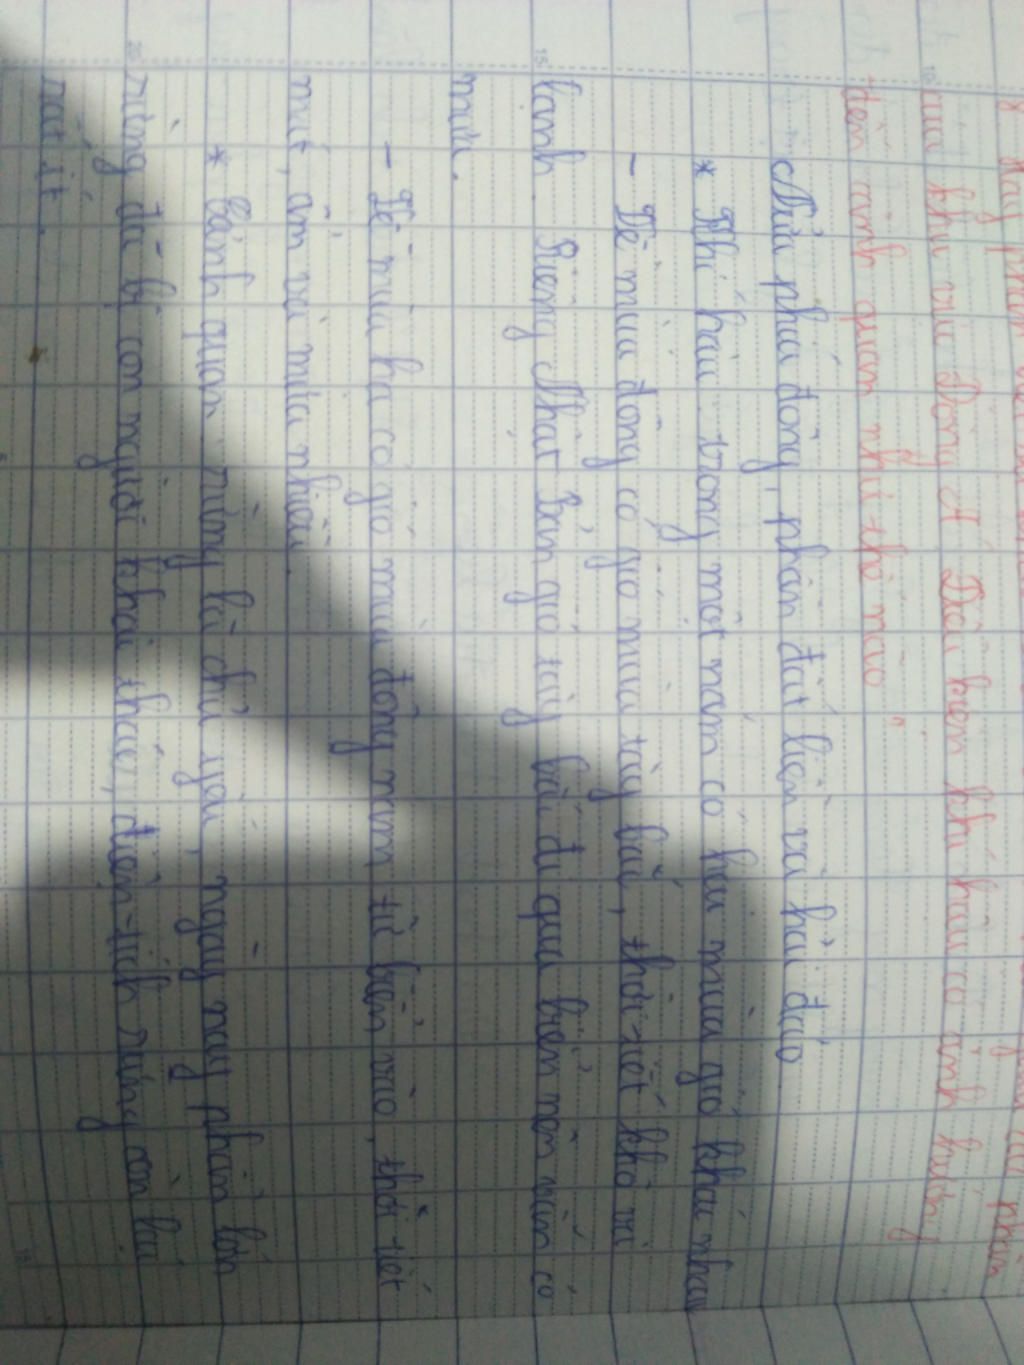 8 Hãy phân
của khu vực Đông Á Điều kiện khí hậu có ảnh hưởng
đến cảnh quan như thế nào
Nửa phía đông, phần đất liền và hải đảo
* Khí hậu: trong một năm có hai mùa gió khác nhau
- Về mùa đông có gió mùa tây bắc, thời tiết khô và
lạnh. Riêng Nhật Bản gió tây bắc đi qua biển nên vẫn có
mưa.
- Về mùa hạ có gió mùa đông nam từ biển vào, thời tiết
mát, ẩm và mưa nhiều.
* Cảnh quan: rừng là chủ yếu, ngày nay phần lớn
rừng đã bị con người khai thác, diện tích rừng còn lại
rất ít.